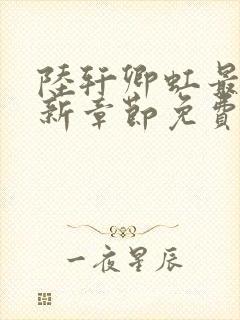 陸轩卿虹最
新章節免費
一夜星辰